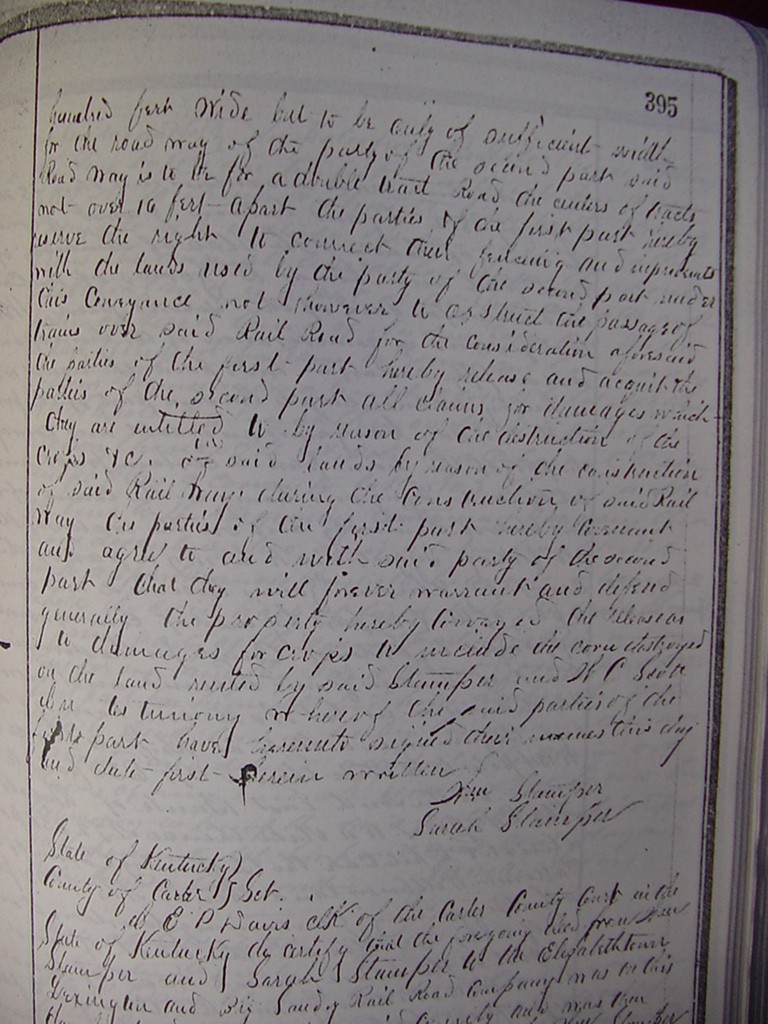 395
hundred feet wide but to be only of sufficient width
for the road way of the party of the second part said
Road Way is to be for a double tract Road the centers of tracts
not over 10 feet apart the parties of the first part hereby
reserve the right to connect their fencing and improvements
with the lands used by the party of the second part under
this Conveyance not however to obstruct the passage of
trains over said Rail Road for the consideration aforesaid
the parties of the first part hereby release and acquit the
parties of the second part all claims for damages which
they are entitled to by reason of the destruction of the
crops &c. on said lands by reason of the construction
of said Rail Way during the construction of said Rail
Way the parties of the first part hereby Covenant
and agree to and with said party of the second
part that they will forever warrant and defend
generally the property hereby conveyed the release as
to damages for crops to include the corn destroyed
on the land rented by said Stamper and W C Scott
In testimony whereof the said parties of the
first part have hereunto signed their names this day
and date first herein written
Stamper
Sarah Stamper
State of Kentucky
County of Carter Sct.
I E P Davis clk of the Carter County Court in the
State of Kentucky do certify that the foregoing deed from
Stamper and Sarah Stamper to the Elizabethtown
Lexington and Big Sandy Rail Road Company was on this
and was then